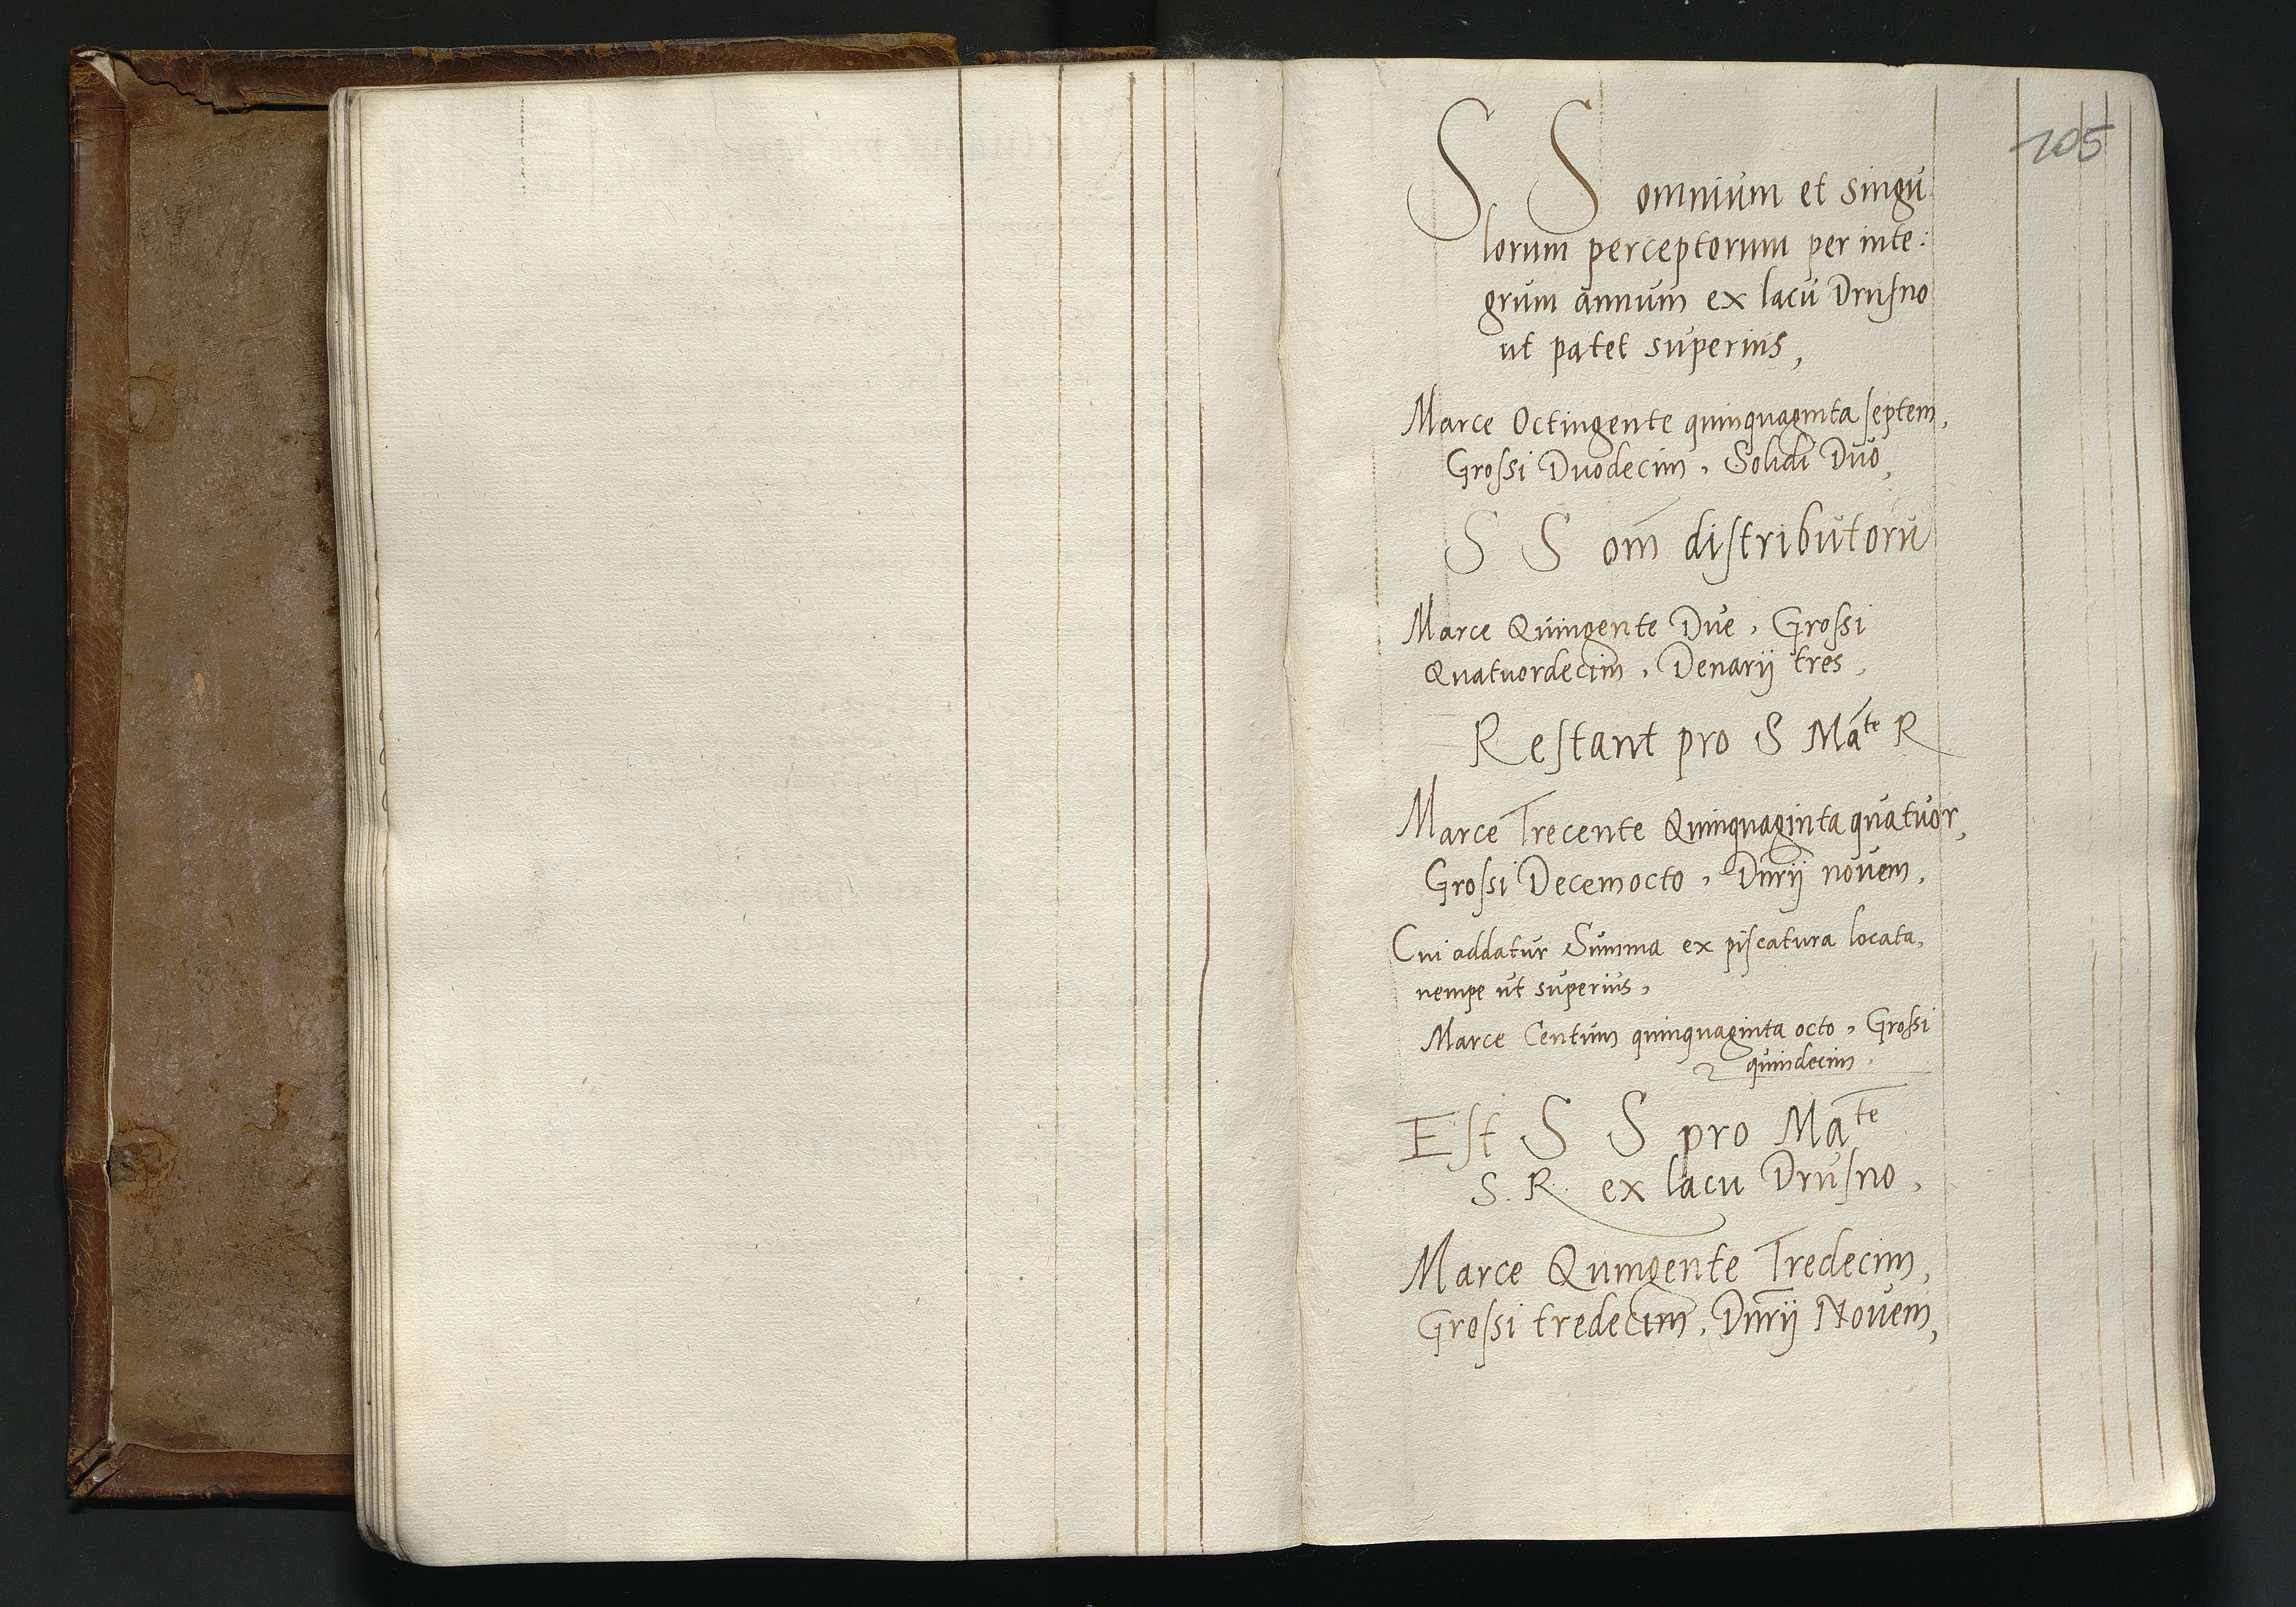 105
S S omnium et singu
lorum perceptorum per inte:
grum annum ex lacu Drusno
ut patet superius,
Marce Octingente quinquaginta septem,
Grossi Duodecim, Solidi Duo,
S S om̄ distributorū
Marce Quingente Due, Grossi
Quatuordecim, Denarij tres,
Restant pro S Mate R
Marce Trecente Quinquaginta quatuor,
Grossi Decemocto, Dnrij novem,
Cui addatur Summa ex piscatura locata,
nempe ut superius,
Marce Centum quinquaginta octo, Grossi
quindecim.
Est S S pro Mate
S. R. ex lacu Drusno,
Marce Quingente Tredecim,
Grossi tredecim, Dnrij Novem,